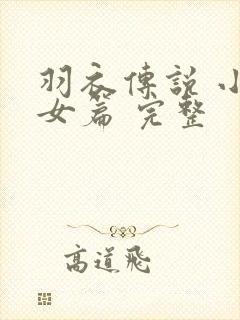 羽衣傳說 小
女篇 完整
高道飛